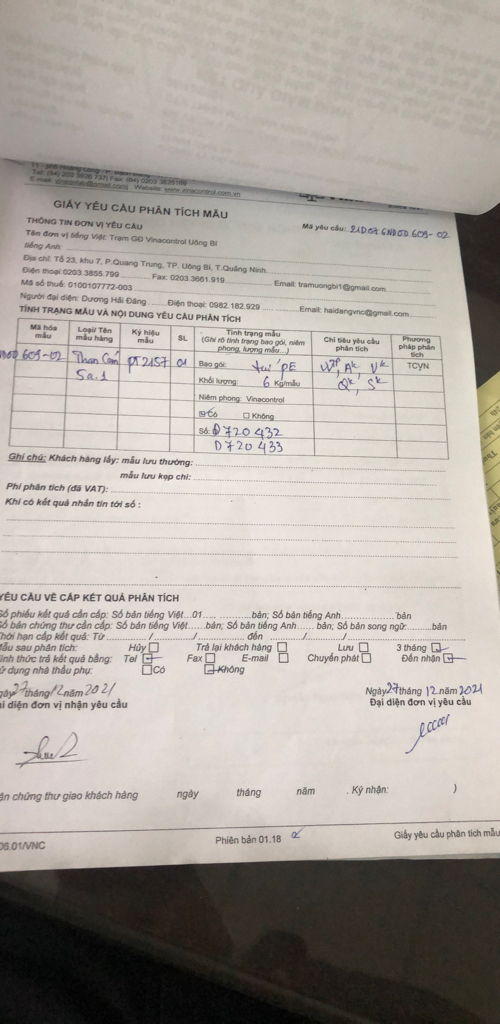 Tel: (84) 203 3825 737| Fax: (84) 0203 3826169
E-mail: Website: www.vinacontrol.com.vn
GIẤY YÊU CẦU PHÂN TÍCH MẪU
Mã yêu cầu: 21D07GNĐOD 609-02
THÔNG TIN ĐƠN VỊ YÊU CẦU
Tên đơn vị tiếng Việt: Trạm GĐ Vinacontrol Uông Bí
tiếng Anh:
Địa chỉ: Tổ 23, khu 7, P.Quang Trung, TP. Uông Bí, T.Quảng Ninh
Điện thoại:0203.3855.799 Fax: 0203.3661.919 Email: tramuongbi1@gmail.com
Mã số thuế: 0100107772-003
Người đại diện: Dương Hải Đăng Điện thoại: 0982.182.929 Email: haidangvnc@gmail.com
TÌNH TRẠNG MẪU VÀ NỘI DUNG YÊU CẦU PHÂN TÍCH
Mã hóa mẫu
Loại/ Tên mẫu hàng
Ký hiệu mẫu
SL
Tình trạng mẫu (Ghi rõ tình trạng bao gói, niêm phong, lượng mẫu...)
Chỉ tiêu yêu cầu phân tích
Phương pháp phân tích
609-02 Than Cám PT2157 01 Bao gói: túi PE Wtp, Ak, Vk TCVN
5a.1 Khối lượng: 6 Kg/mẫu Qk, Sk
Niêm phong: Vinacontrol
Có Không
Số: D720432
D720433
Ghi chú: Khách hàng lấy: mẫu lưu thường:
mẫu lưu kẹp chì:
Phí phân tích (đã VAT):
Khi có kết quả nhắn tin tới số :
YÊU CẦU VỀ CẤP KẾT QUẢ PHÂN TÍCH
Số phiếu kết quả cần cấp: Số bản tiếng Việt...01... bản; Số bản tiếng Anh bản
Số bản chứng thư cần cấp: Số bản tiếng Việt......bản; Số bản tiếng Anh ...... bản; Số bản song ngữ bản
Thời hạn cấp kết quả: Từ / / đến / /
Mẫu sau phân tích: Hủy Trả lại khách hàng Lưu 3 tháng
Hình thức trả kết quả bằng: Tel Fax E-mail Chuyển phát Đến nhận
Sử dụng nhà thầu phụ: Có Không
Ngày 27 tháng 12 năm 2021 Ngày 27 tháng 12 năm 2021
Đại diện đơn vị nhận yêu cầu Đại diện đơn vị yêu cầu
chứng thư giao khách hàng ngày tháng năm . Ký nhận: )
06.01/VNC Phiên bản 01.18 Giấy yêu cầu phân tích mẫu